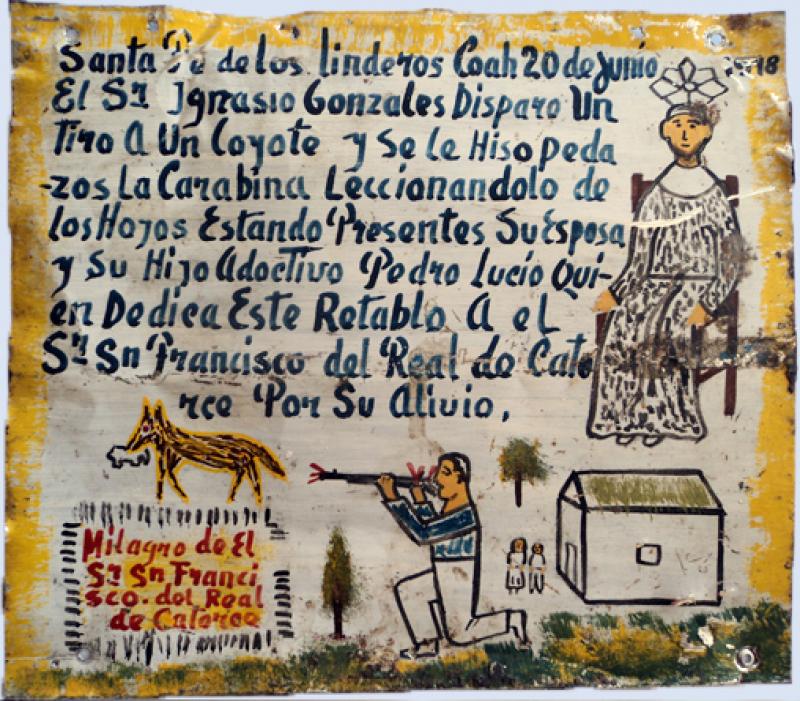 Santa Fe de los linderos Coah 20 de junio
El Sr Ignasio Gonzales Disparo Un
Tiro A Un Coyote y Se le Hiso peda
-zos La Carabina Leccionandolo de
los Hojos Estando Presentes Su Esposa
y Su Hijo Adoctivo Pedro Lucio Qui-
en Dedica Este Retablo A el
Sr Sn Francisco del Real de Cato
rce Por Su Alivio,
Milagro de El
Sr Sn. Franci
sco. del Real
de Catorce